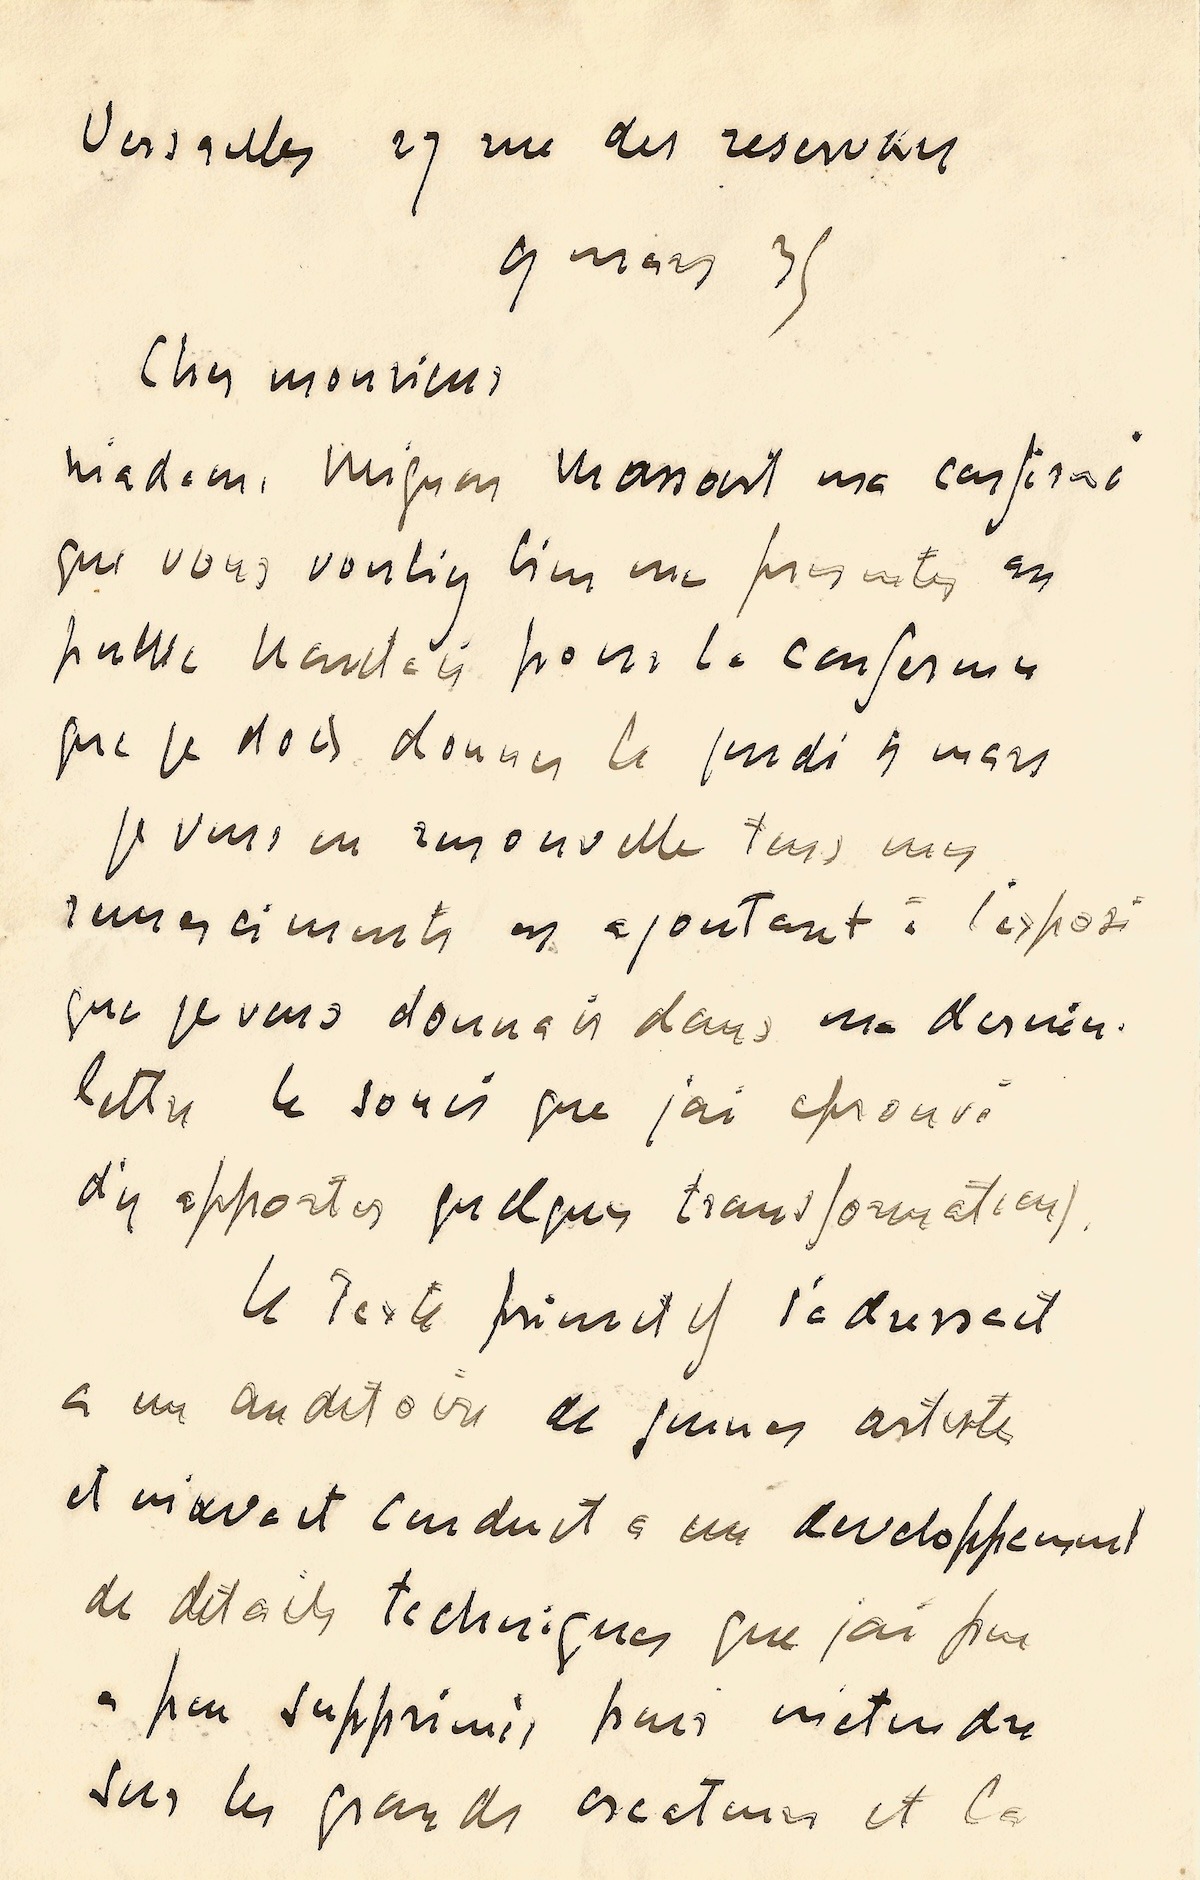 Versailles 27 rue des reservoirs
9 mars 35
Cher monsieur
madame Mignon Massart ma confirmé
que vous vouliez bien me presenter au
public Nantais pour la conference
que je dois donner le jeudi mars
je vous en renouvelle tous mes
remerciments en ajoutant à l'exposé
que je vous donnais dans ma derniere
lettre le soucis que j'ai eprouvé
d'y apporter quelques transformations.
le Texte primitif s'adressait
a un auditoire de jeunes artistes
et m'avait conduit a un developpement
de détails techniques que j'ai peu
a peu supprimés pour m'etendre
sur les grands createurs et la